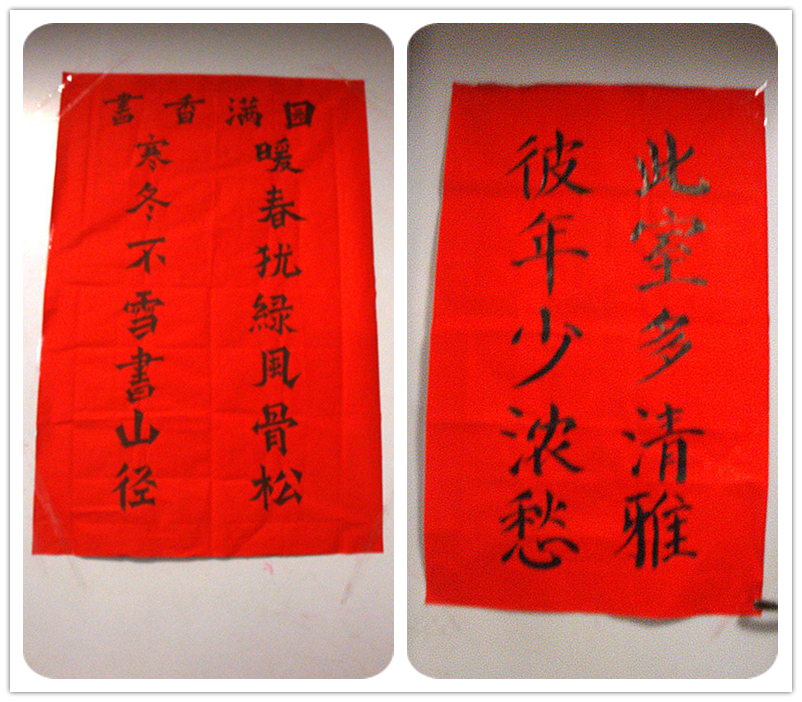 書香满园
暖春犹緑風骨松
寒冬不雪書山径
此室多清雅
彼年少浓愁